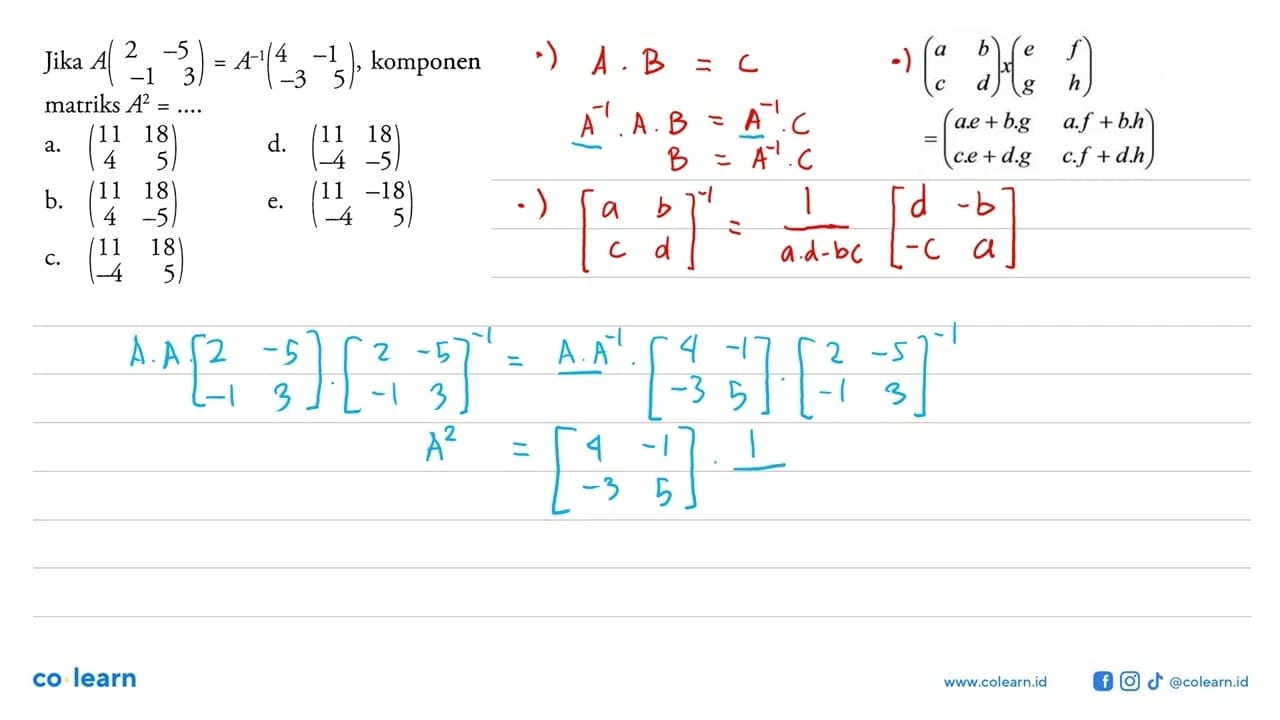 Jika A(2 –5
–1 3) = A⁻¹(4 –1
–3 5), komponen
matriks A² = ....
a. (11 18
4 5)
b. (11 18
4 –5)
c. (11 18
–4 5)
d. (11 18
–4 –5)
e. (11 –18
–4 5)
•) A . B = C
A⁻¹ . A . B = A⁻¹ . C
B = A⁻¹ . C
•) (a b
c d) x (e f
g h)
= (a.e + b.g a.f + b.h
c.e + d.g c.f + d.h)
•) [a b
c d]⁻¹ = 1
a.d-bc [d -b
-c a]
A . A . [2 -5
-1 3] . [2 -5
-1 3]⁻¹ = A . A⁻¹ . [4 -1
-3 5] . [2 -5
-1 3]⁻¹
A² = [4 -1
-3 5] . 1
co·learn
www.colearn.id
@colearn.id